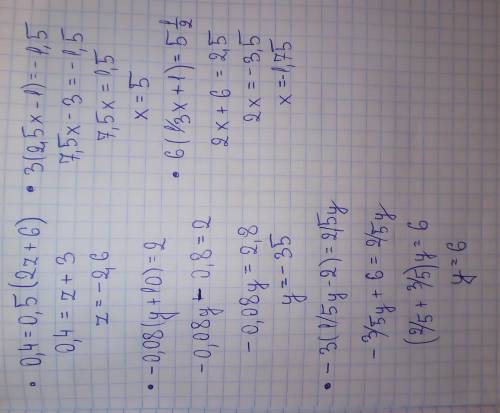 • 0,4=0,5(2z+6)
0,4=z+3
z=-2,6
• -0,08(y+10)=2
-0,08y-0,8=2
-0,08y=2,8
y=-35
• -3(1/5y-2)=2/5y
-3/5y+6=2/5y
(2/5+3/5)y=6
y=6
• 3(2,5x-1)=-1,5
7,5x-3=-1,5
7,5x=1,5
x=5
• 6(1/3x+1)=5 1/2
2x+6=2,5
2x=-3,5
x=-1,75